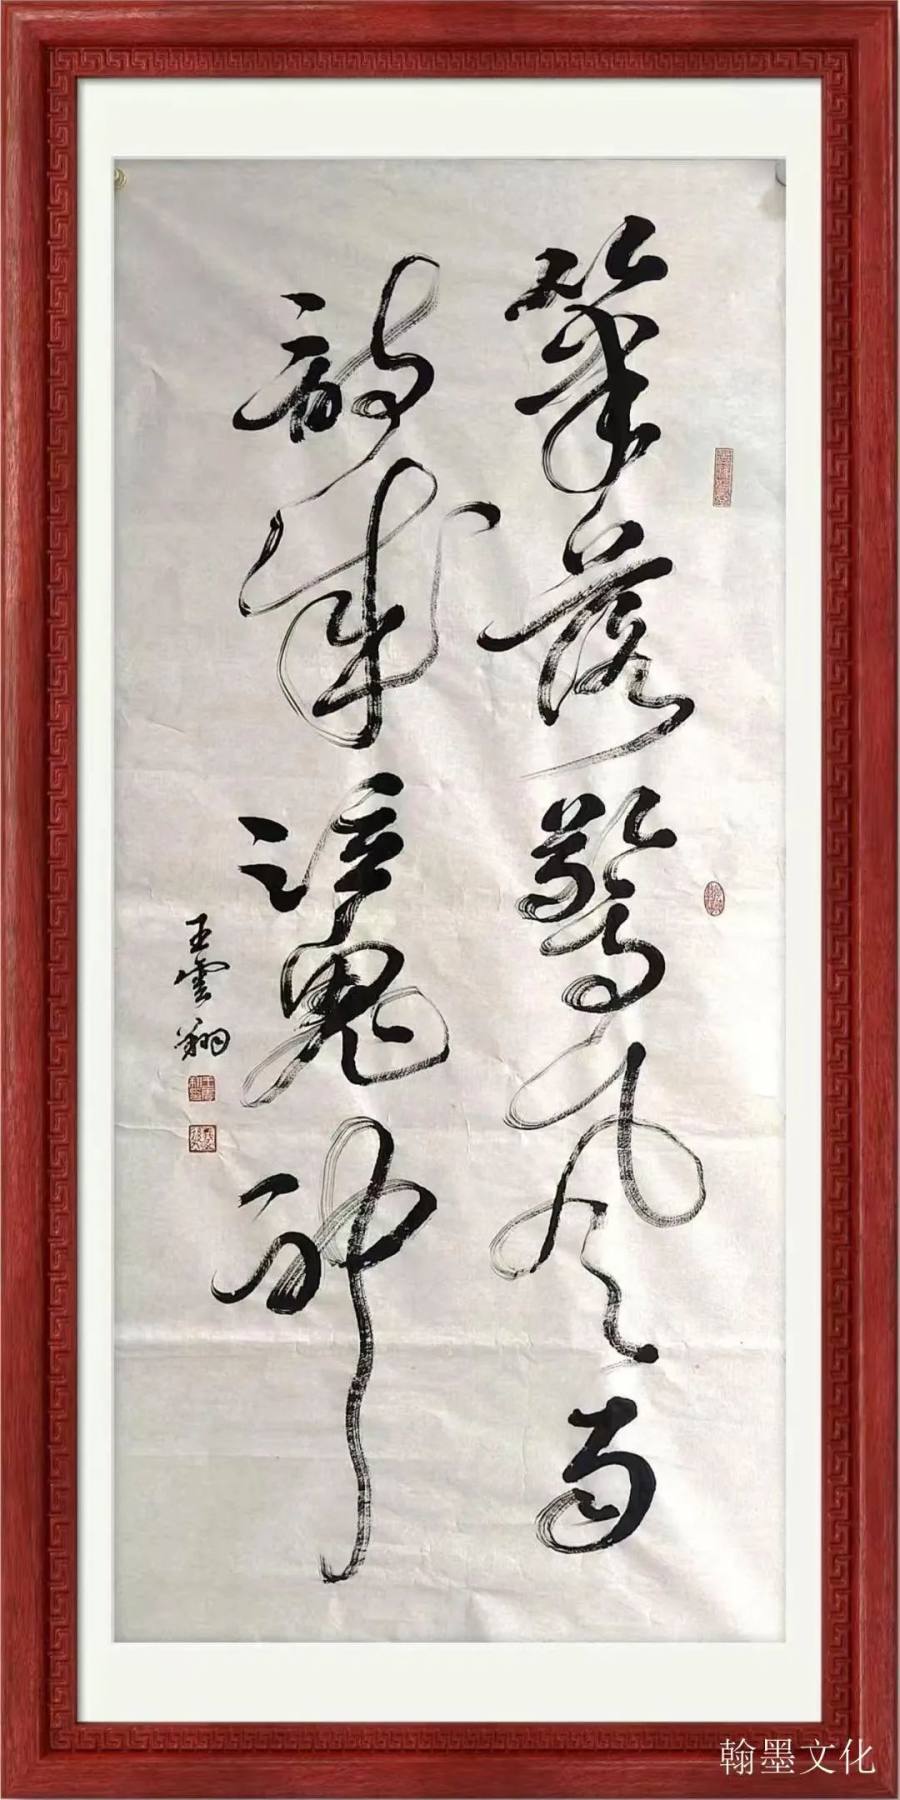 筆落驚風雨
詩成泣鬼神
王雲翔
翰墨文化